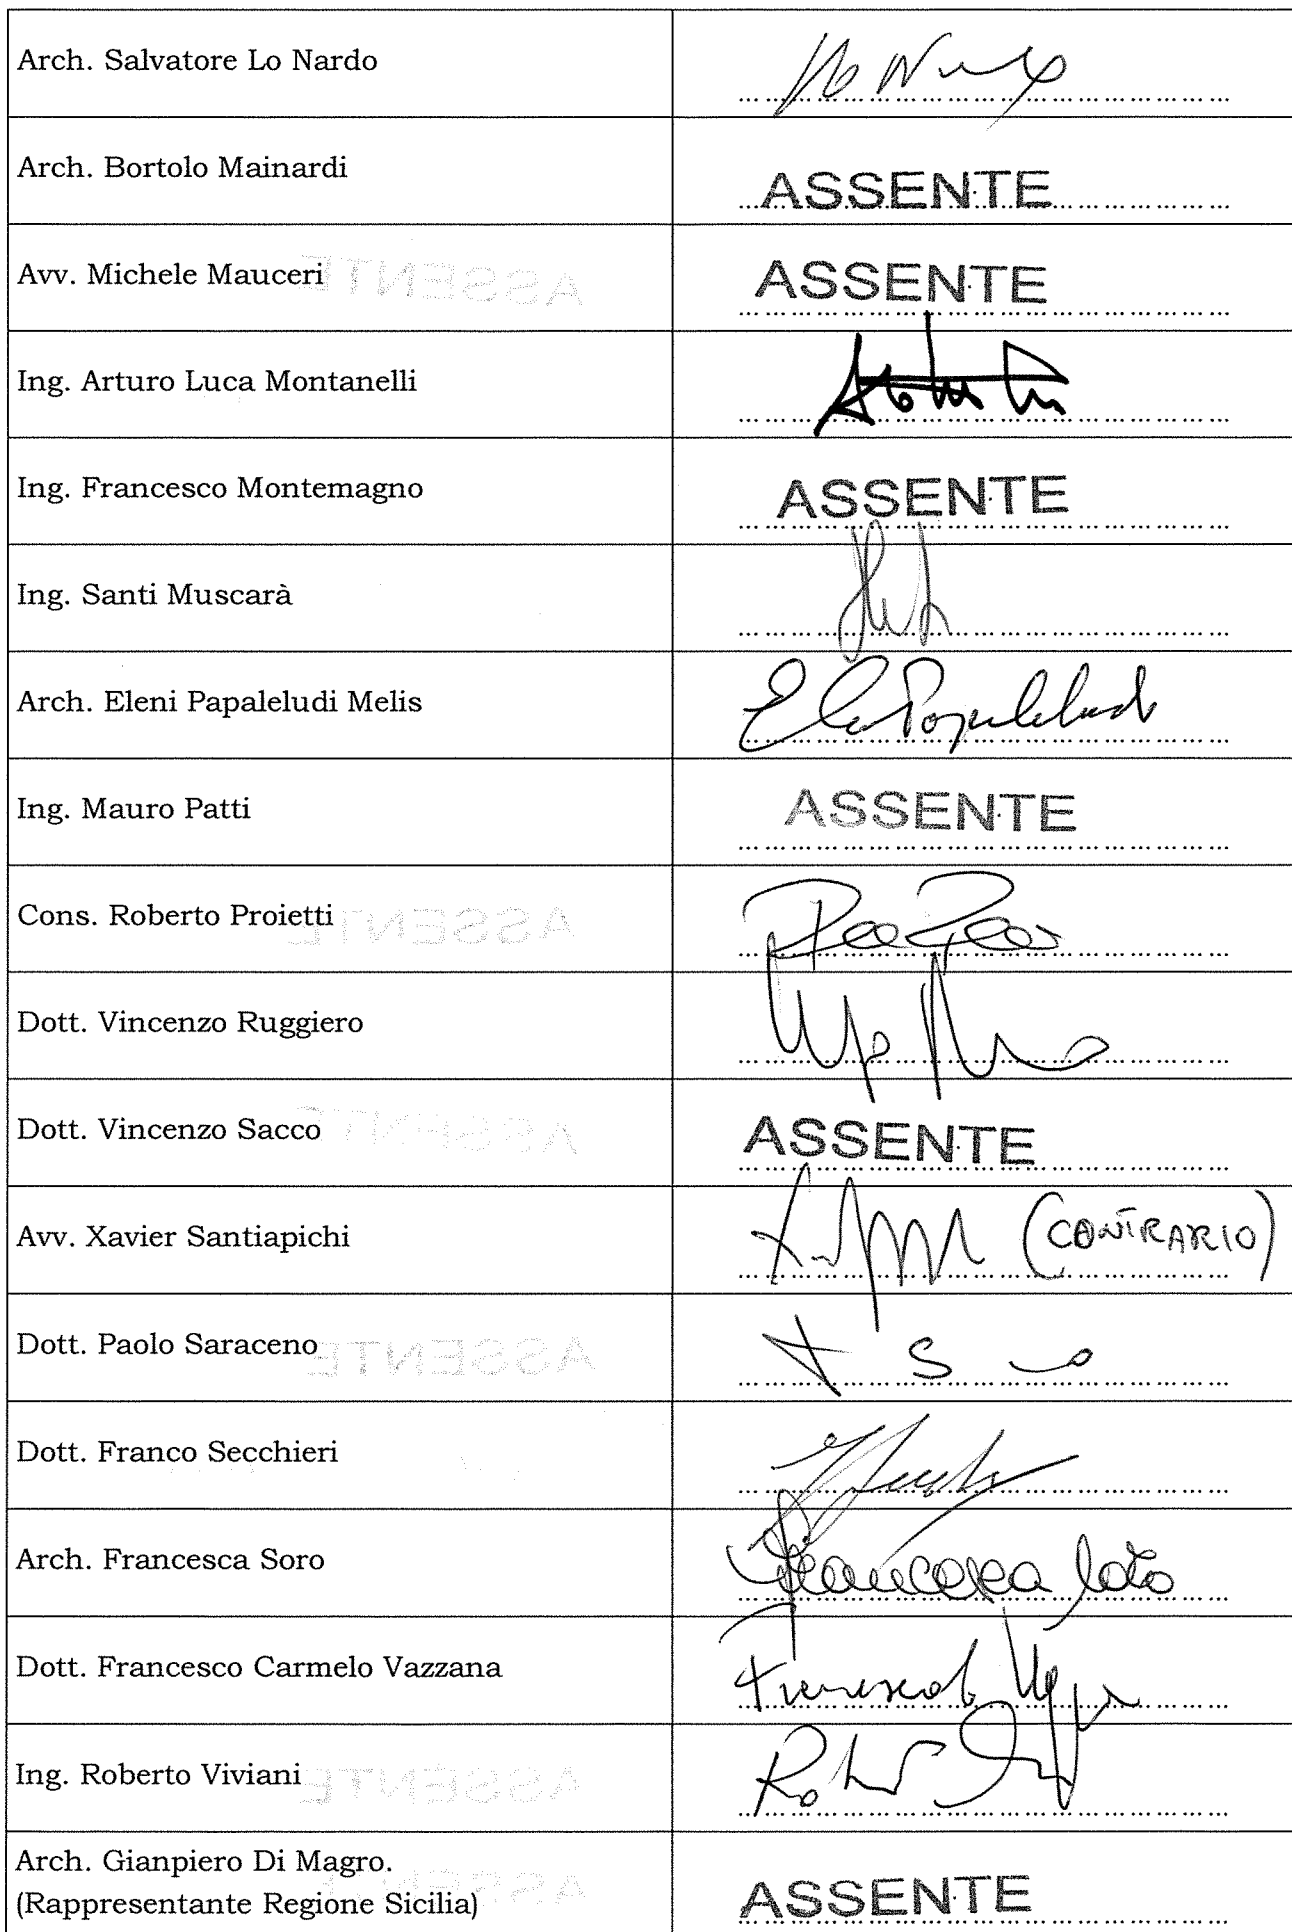 Arch. Salvatore Lo Nardo
Arch. Bortolo Mainardi
ASSENTE
Avv. Michele Mauceri
ASSENTE
Ing. Arturo Luca Montanelli
Ing. Francesco Montemagno
ASSENTE
Ing. Santi Muscarà
Arch. Eleni Papaleludi Melis
Ing. Mauro Patti
ASSENTE
Cons. Roberto Proietti
Dott. Vincenzo Ruggiero
Dott. Vincenzo Sacco
ASSENTE
Avv. Xavier Santiapichi
(CONTRARIO)
Dott. Paolo Saraceno
Dott. Franco Secchieri
Arch. Francesca Soro
Francesca Soro
Dott. Francesco Carmelo Vazzana
Ing. Roberto Viviani
Arch. Gianpiero Di Magro.
(Rappresentante Regione Sicilia)
ASSENTE